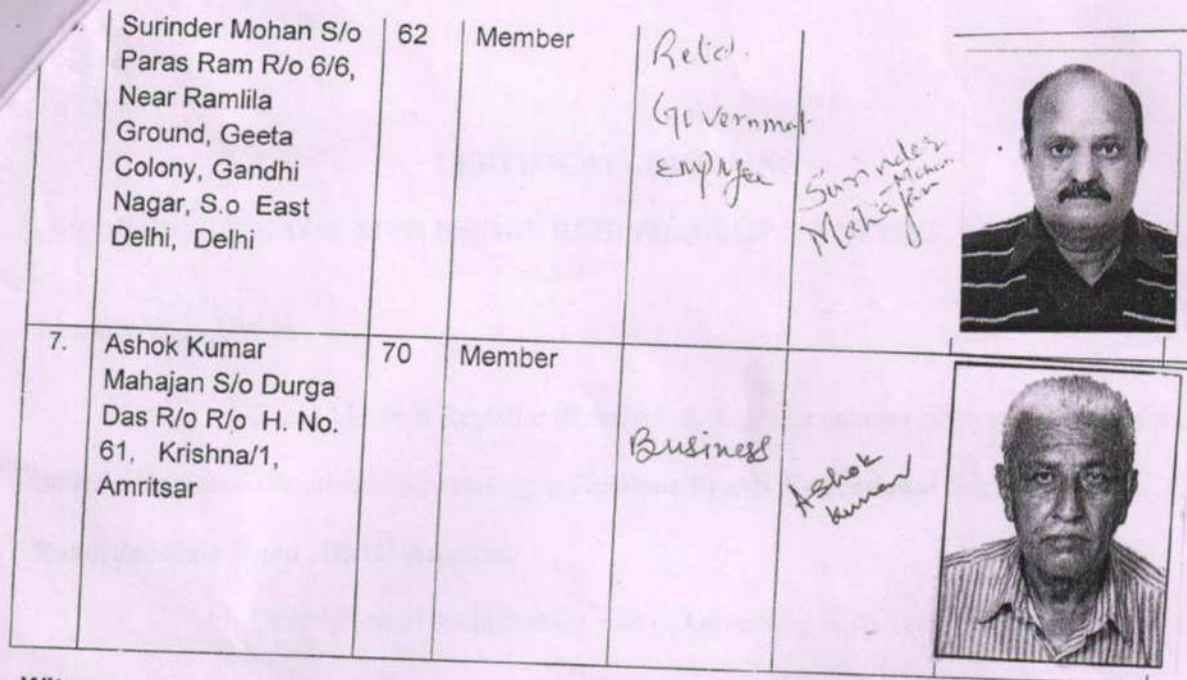 Surinder Mohan S/o
Paras Ram R/o 6/6,
Near Ramlila
Ground, Geeta
Colony, Gandhi
Nagar, S.o East
Delhi, Delhi
62
Member
Retd.
Government
Employee
Surinder
Mohan
Mahajan
7.
Ashok Kumar
Mahajan S/o Durga
Das R/o R/o H. No.
61, Krishna/1,
Amritsar
70
Member
Business
Ashok
Kumar